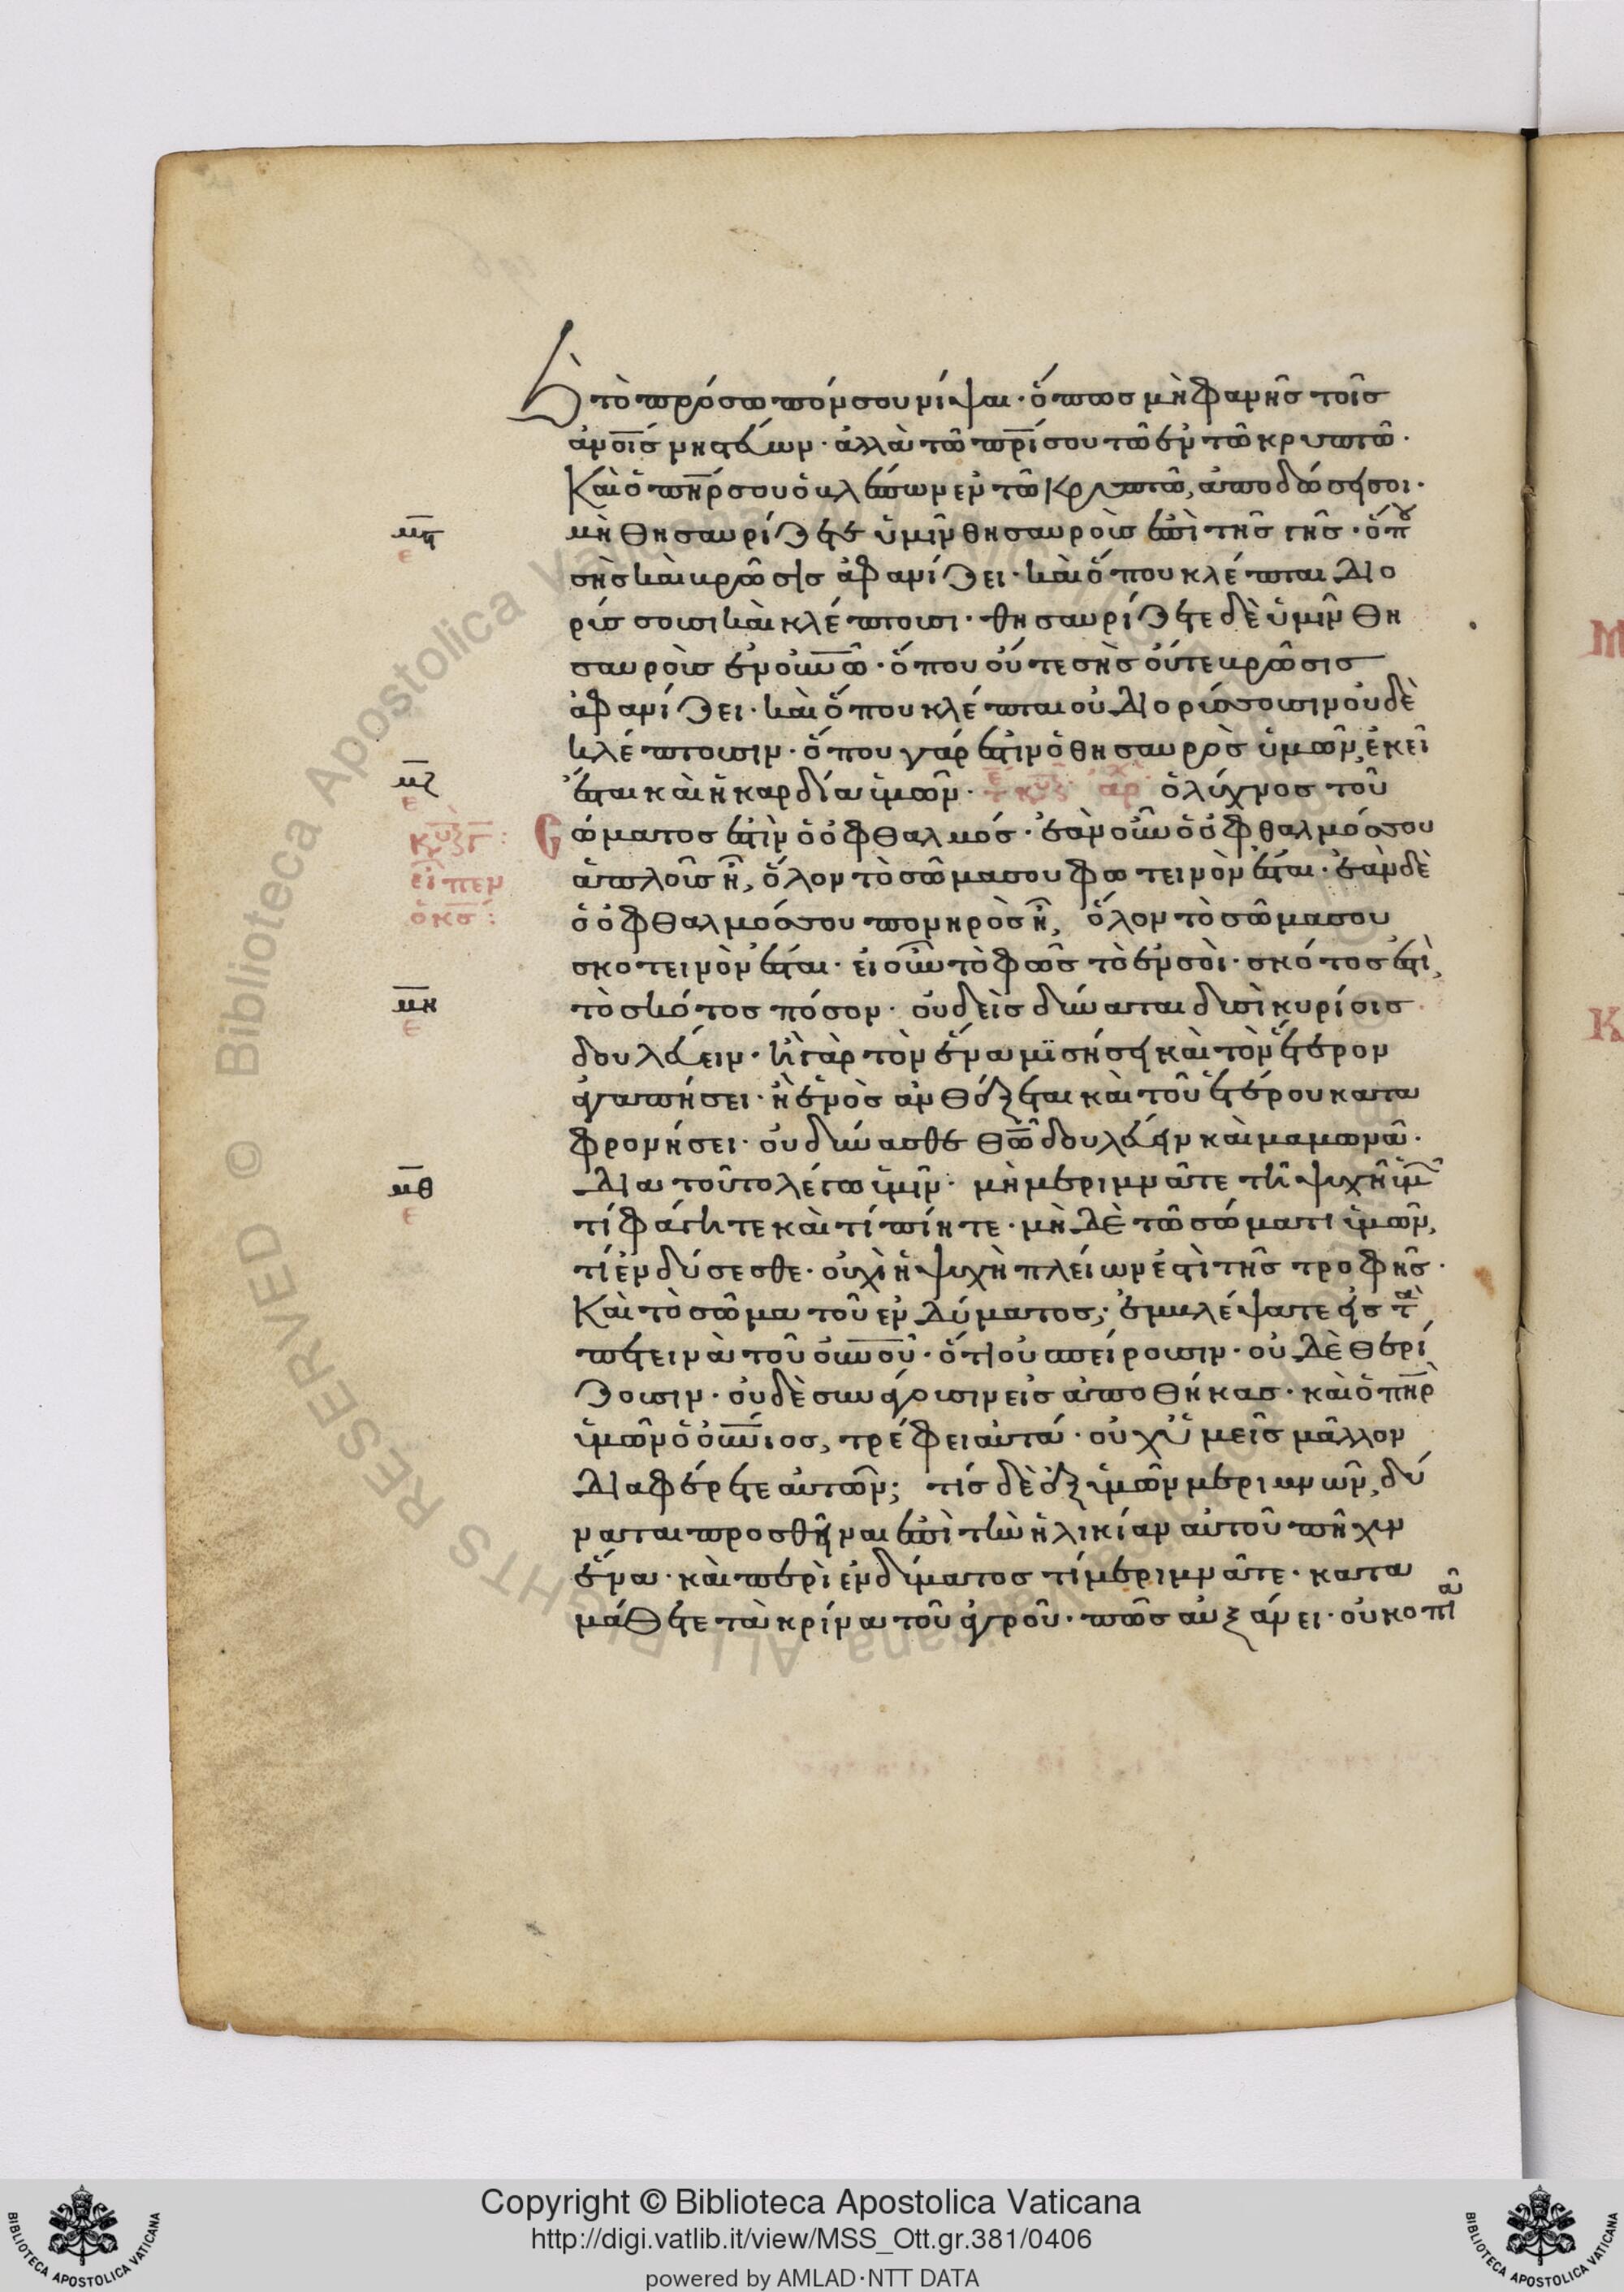 τὸ πρόσωπόν σου νίψαι· ὅπως μὴ φανῆς τοῖς
ἀνο̅ι̅ς νηστεύων· ἀλλὰ τῶ π̅ρ̅ι σου τῶ ἐν τῶ κρυπτῶ·
Καὶ ὁ π̅η̅ρ σου ὁ βλέπων ἐν τῶ κρυπτῶ, ἀποδώσει σοι·
μ̅ϛ̅
ε
μὴ θησαυρίζετε ὑμῖν θησαυροὺς ἐπὶ τῆς γῆς· ὅπου
σὴς καὶ βρῶσις ἀφανίζει· καὶ ὅπου κλέπται διο
ρύσσουσι καὶ κλέπτουσι· θησαυρίζετε δὲ ὑμῖν θη
σαυροὺς ἐν ο̅υ̅ν̅ῶ̅· ὅπου οὔτε σὴς οὔτε βρῶσις
ἀφανίζει· καὶ ὅπου κλέπται οὐ διορύσσουσιν οὐδὲ
κλέπτουσιν· ὅπου γάρ ἐστιν ὁ θησαυρὸς ὑμῶν, ἐκεῖ
μ̅ζ̅
ε
ἔσται καὶ ἡ καρδία ὑμῶν· ὁ λύχνος τοῦ
σώματος ἐστὶν ὁ ὀφθαλμός· ἐὰν οὖν ὁ ὀφθαλμός σου
εἶπεν
ὁ κ̅ς̅:
ἁπλοῦς ἦ, ὅλον τὸ σῶμα σου φωτεινὸν ἔσται· ἐὰν δὲ
ὁ ὀφθαλμός σου πονηρὸς ἦ, ὅλον τὸ σῶμα σου
σκοτεινὸν ἔσται· εἰ οὖν τὸ φῶς τὸ ἐν σοὶ· σκότος ἐστὶ,
μ̅η̅
ε
τὸ σκότος πόσον· οὐδεὶς δύναται δυσὶ κυρίοις
δουλεύειν· ἢ γὰρ τὸν ἕνα μισήσει καὶ τὸν ἕτερον
ἀγαπήσει· ἢ ἑνὸς ἀνθέξεται καὶ τοῦ ἑτέρου κατα
φρονήσει· οὐ δύνασθε θ̅ῶ̅ δουλεύειν καὶ μαμωνᾶ·
μ̅θ̅
ε
Δια τοῦτο λέγω ὑμῖν· μὴ μεριμνᾶτε τῆ ψυχῆ ὑμῶν
τί φάγητε καὶ τί πίητε· μὴ δὲ τῶ σώματι ὑμῶν,
τί ἐνδύσεσθε· οὐχὶ ἡ ψυχὴ πλείων ἐστὶ τῆς τροφῆς·
Καὶ τὸ σῶμα τοῦ ἐνδύματος; ἐμβλέψατε εἰς τὰ
πετεινὰ τοῦ ο̅υ̅ν̅ο̅ῦ̅· ὅτι οὐ σπείρουσιν· οὐδὲ θερί
ζουσιν· οὐδὲ συνάγουσιν εἰς ἀποθήκας· καὶ ὁ π̅η̅ρ
ὑμῶν ὁ ο̅υ̅ν̅ιος, τρέφει αὐτά· οὐχ ὑμεῖς μᾶλλον
διαφέρετε αὐτῶν; τίς δὲ ἐξ ὑμῶν μεριμνῶν, δύ
ναται προσθῆναι ἐπὶ τὴν ἡλικίαν αὐτοῦ πῆχυν
ἕνα· καὶ περὶ ἐνδύματος τί μεριμνᾶτε· κατα
μάθετε τὰ κρίνα τοῦ ἀγροῦ· πῶς αὐξάνει· οὐ κοπιᾶ
Copyright © Biblioteca Apostolica Vaticana
http://digi.vatlib.it/view/MSS_Ott.gr.381/0406
powered by AMLAD·NTT DATA
BIBLIOTECA APOSTOLICA VATICANA
BIBLIOTECA APOSTOLICA VATICANA